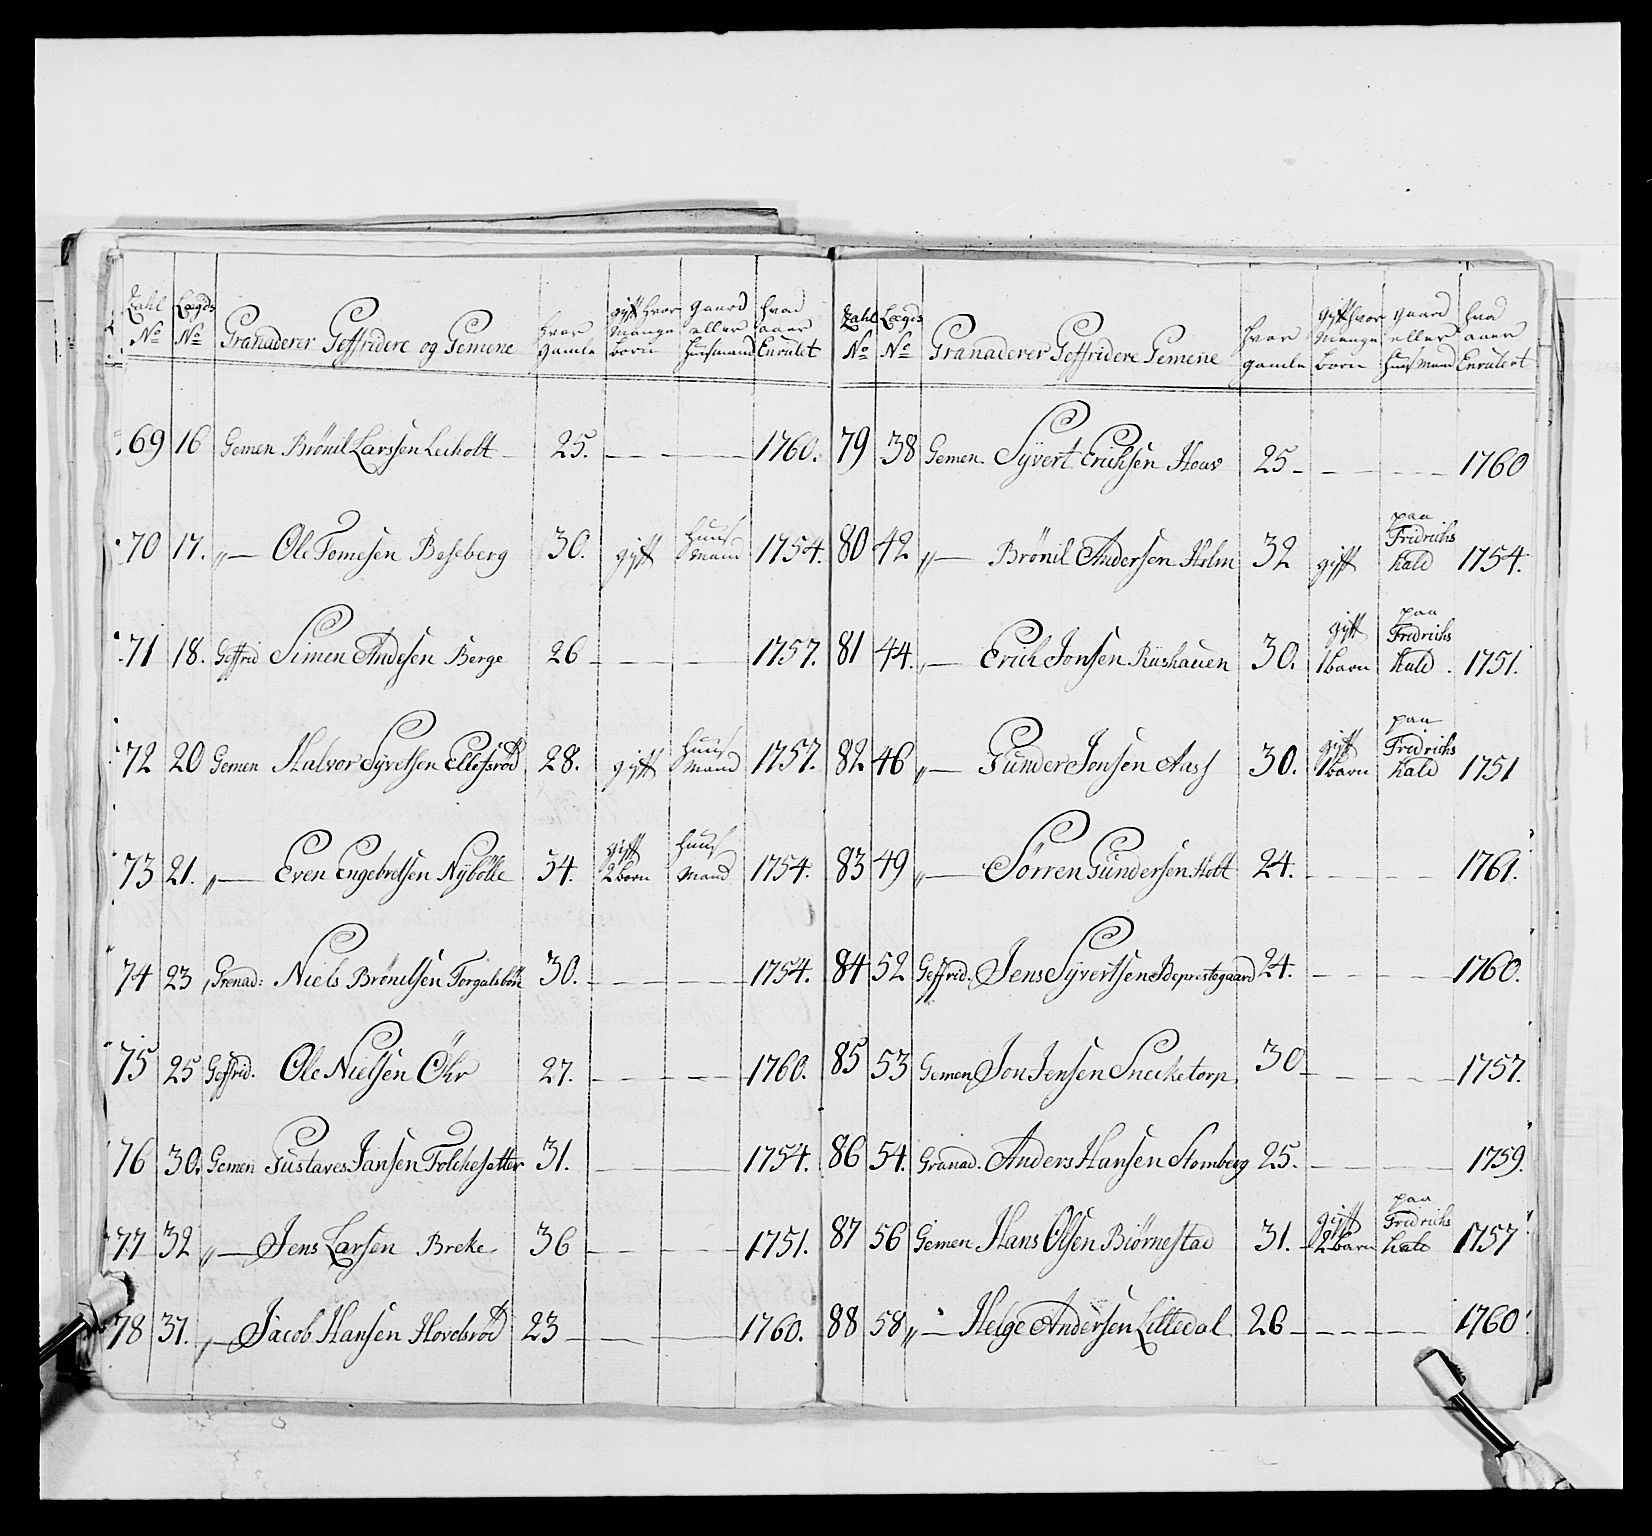 Tahl No Lægds No Granaderer Geffridere og Gemene hvor gamle gift hvor mange born gaard eller huusmand hvad aaer Enrulet
69 16 Gemen Brönil Larssen Leeholt 25. 1760.
70 17. „— Ole Tomesen Boseberg 30. gift huus mand 1754.
71 18. Geffrid Simen Andesen Berge 26 1757.
72 20 Gemen Halvor Syvetsen Ellefsröd 28. gift huus mand 1757.
73 21. „— Even Engebretsen Nÿbölle 34. gift 2 born huus mand 1754.
74 23 Grenad: Niels Brönilsen 30. 1754.
75 25 Geffrid. Ole Nielsen Öhr 27. 1760.
76 30. Gemen Gustaves Jansen Folckesetter 31. 1754.
77 32 „— Jens Larsen Breke 36 1751.
78 37. „— Jacob Hansen Hovelsröd 23 1760.
Tahl No Lægds No Granaderer Geffridere Gemene hvor gamle gift hvor mange born gaard eller huusmand hvad aaer Enrulert
79 38 Gemen Syvert Erichsen 25 1760
80 42 „— Brönil Andersen Holm 32 gift paa Fridrichs hald 1754.
81 44. „— Erich Jonsen Riishauen 30. gift 1 barn paa Fridrichs hald. 1751.
82 46 „— Gunder Jonsen Aass 30. gift 1 barn paa Fredrichs hald 1751
83 49 „— Sörren Gundersen Holt 24. 1761.
84 52 Geffrid. Jens Syvertsen Ideprestegaard 24. 1760.
85 53 Gemen Jon Jensen Sneeketorp 30 1757.
86 54. Granad. Anders Hansen Stomberg 25. 1759.
87 56 Gemen Hans Olsen Biörnestad 31. gift 2 barn paa Fridrichs hald 1757
88 58 „— Helge Andersen Lilledal 26 1760